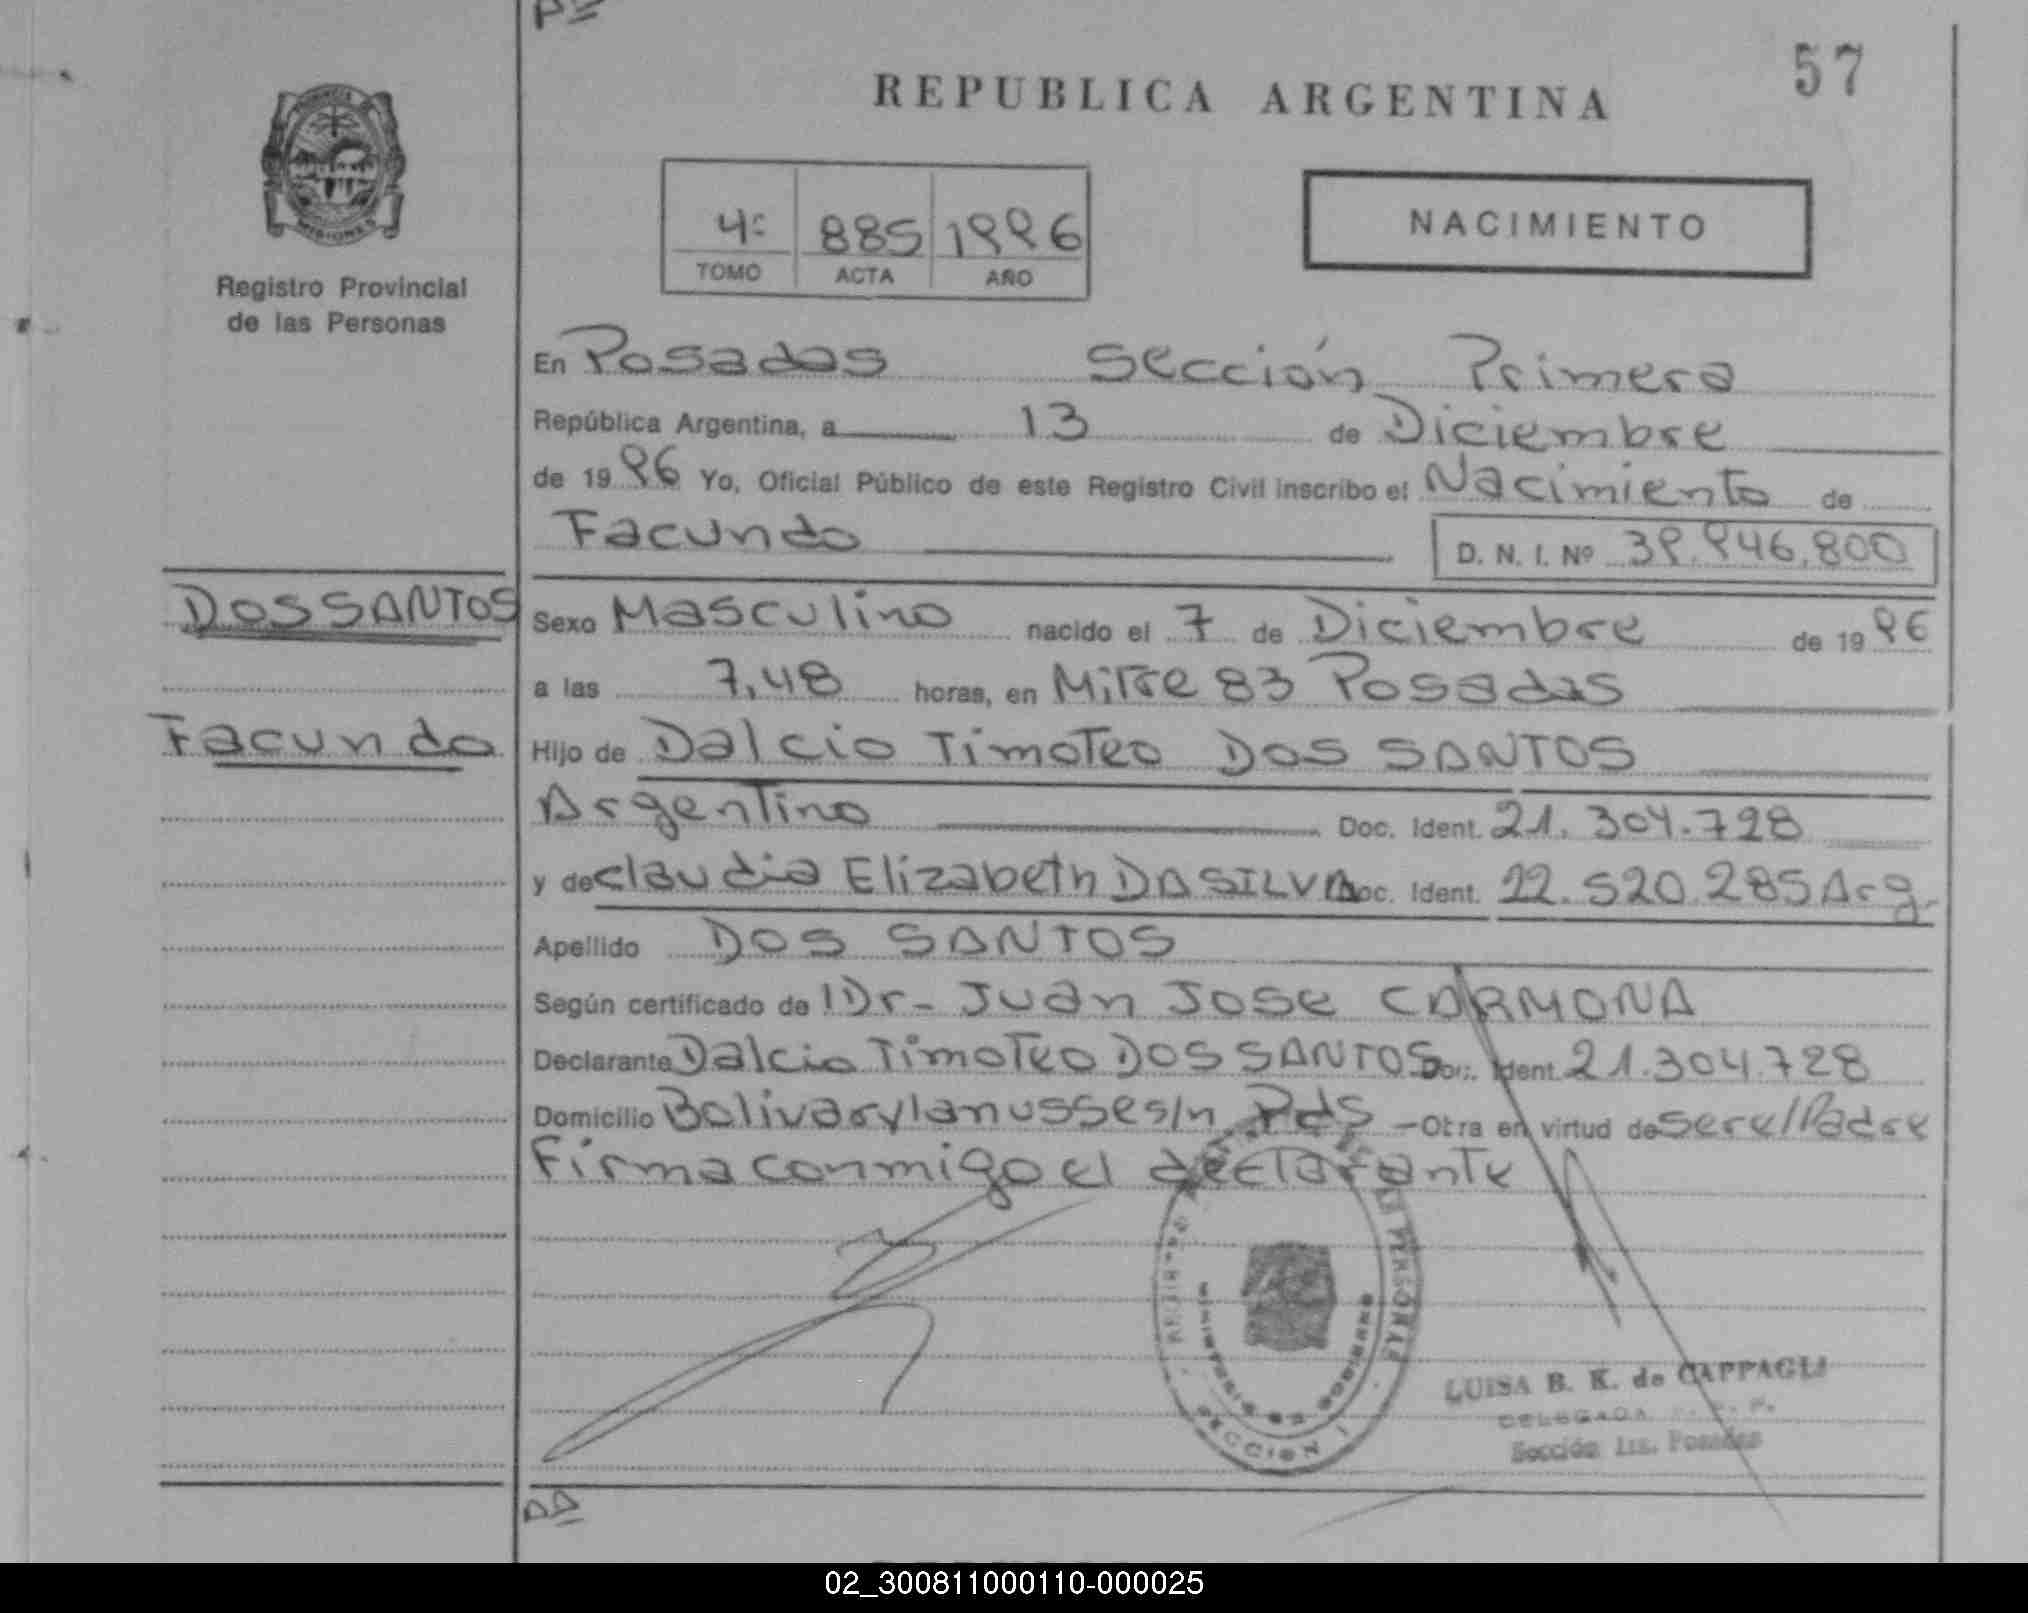 57
REPUBLICA ARGENTINA
PROVINCIA
MISIONES
Registro Provincial
de las Personas
4º 885 1996
TOMO ACTA AÑO
NACIMIENTO
En Posadas Sección Primera
República Argentina, a 13 de Diciembre
de 1996 Yo, Oficial Público de este Registro Civil inscribo el Nacimiento de
Facundo D. N. I. Nº 39.946.800
DOS SANTOS
Sexo Masculino nacido el 7 de Diciembre de 1996
a las 7,48 horas, en Mitre 83 Posadas
Facundo
Hijo de Dalcio Timoteo DOS SANTOS
Argentino Doc. Ident. 21.304.728
y de Claudia Elizabeth DA SILVA Doc. Ident. 22.520.285 Arg.
Apellido DOS SANTOS
Según certificado de Dr- Juan Jose CARMONA
Declarante Dalcio Timoteo DOS SANTOS Doc. Ident. 21.304.728
Domicilio Bolivar y lanusse s/n Pds - Otra en virtud de ser el Padre
Firma conmigo el declarante
SECCION I
LUISA B. K. de CAPPAGLI
DELEGADA
Sección 1ra. Posadas
02_300811000110-000025